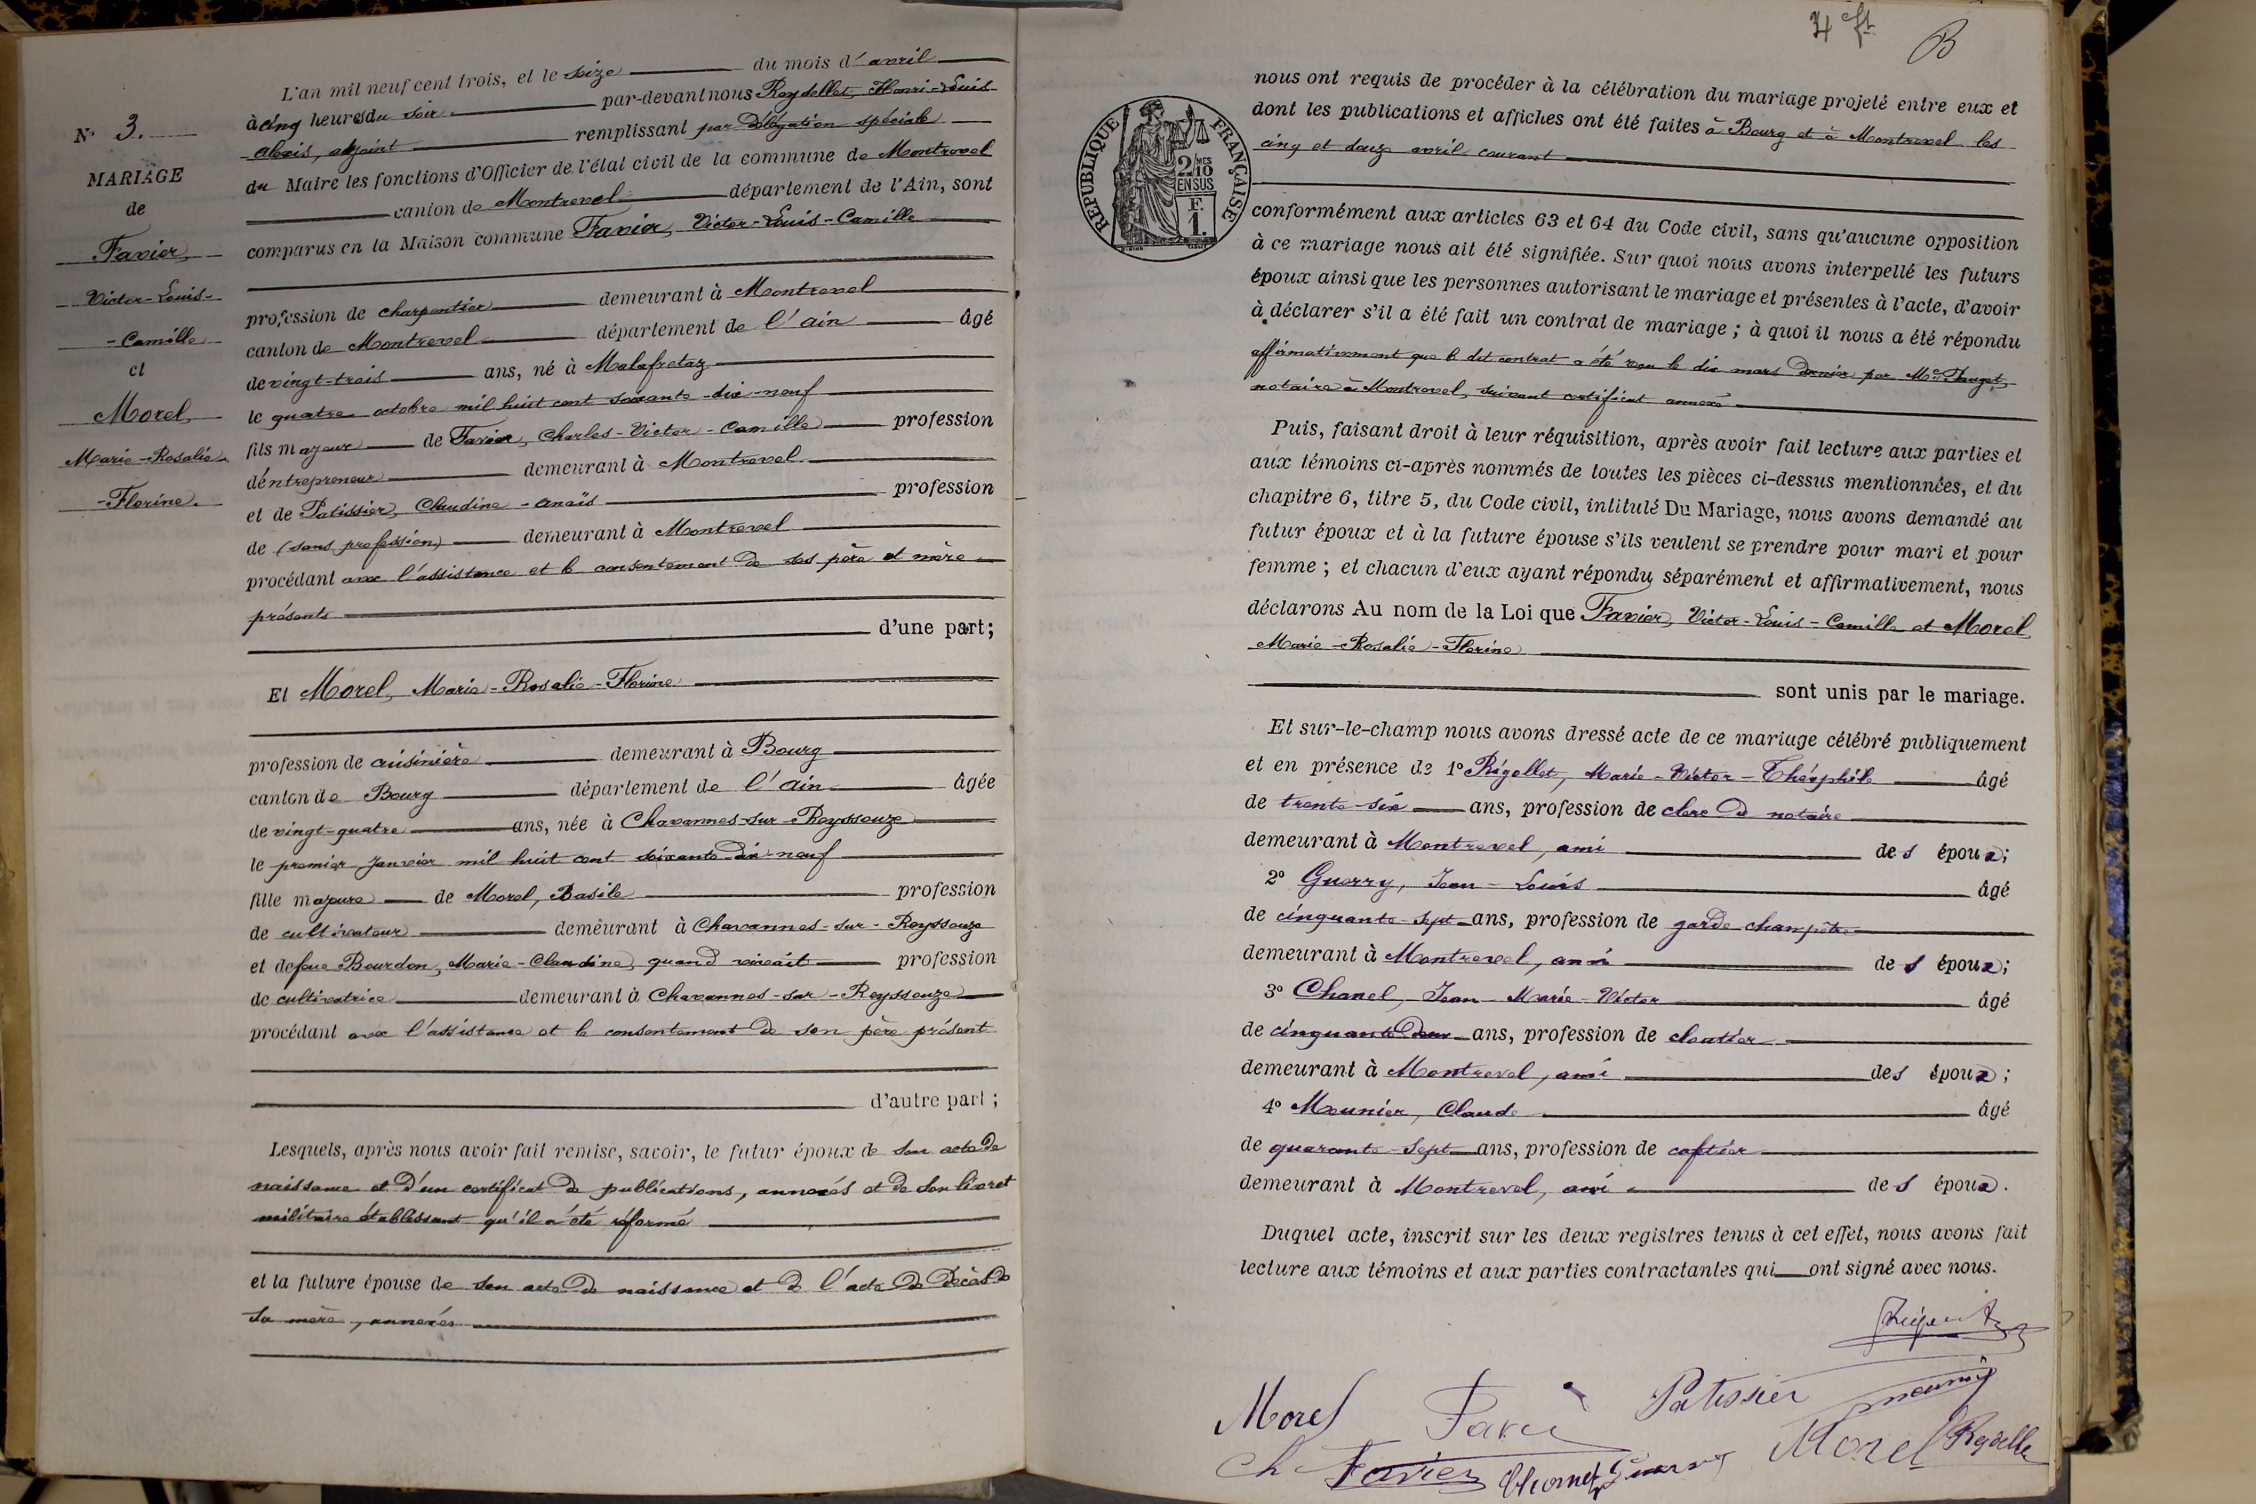 N° 3.
MARIAGE
de
Favier,
Victor-Louis-
-Camille
et
Morel,
Marie-Rosalie-
-Florine.
L'an mil neuf cent trois, et le seize du mois d'avril
à cinq heures du soir par-devant nous Reydellet, Henri-Louis
alexis, adjoint remplissant par délégation spéciale
du Maire les fonctions d'Officier de l'état civil de la commune de Montrevel
canton de Montrevel département de l'Ain, sont
comparus en la Maison commune Favier, Victor-Louis-Camille
profession de charpentier demeurant à Montrevel
canton de Montrevel département de l'ain âgé
de vingt-trois ans, né à Malafretaz
le quatre octobre mil huit cent soixante-dix-neuf
fils majeur de Favier, Charles-Victor-Camille profession
d'entrepreneur demeurant à Montrevel
et de Patissier, Claudine-anaïs profession
de (sans profession) demeurant à Montrevel
procédant avec l'assistance et le consentement de ses père et mère
présents
d'une part;
Et Morel, Marie-Rosalie-Florine
profession de cuisinière demeurant à Bourg
canton de Bourg département de l'ain âgée
de vingt-quatre ans, née à Chavannes-sur-Reyssouze
le premier Janvier mil huit cent soixante-dix-neuf
fille majeure de Morel, Basile profession
de cultivateur demeurant à Chavannes-sur-Reyssouze
et de feue Bourdon, Marie-Claudine, quand vivait profession
de cultivatrice demeurant à Chavannes-sur-Reyssouze
procédant avec l'assistance et le consentement de son père présent
d'autre part;
Lesquels, après nous avoir fait remise, savoir, le futur époux de son acte de
naissance et d'un certificat de publications, annexés et de son livret
militaire établissant qu'il a été réformé
et la future épouse de son acte de naissance et de l'acte de décès de
sa mère, annexés
B
RÉPUBLIQUE FRANÇAISE
2/10 MES
EN SUS
F.
1.
nous ont requis de procéder à la célébration du mariage projeté entre eux et
dont les publications et affiches ont été faites à Bourg et à Montrevel les
cinq et douze avril courant
conformément aux articles 63 et 64 du Code civil, sans qu'aucune opposition
à ce mariage nous ait été signifiée. Sur quoi nous avons interpellé les futurs
époux ainsi que les personnes autorisant le mariage et présentes à l'acte, d'avoir
à déclarer s'il a été fait un contrat de mariage; à quoi il nous a été répondu
affirmativement que le dit contrat a été reçu le dix mars dernier par Me
notaire à Montrevel, suivant certificat annexé
Puis, faisant droit à leur réquisition, après avoir fait lecture aux parties et
aux témoins ci-après nommés de toutes les pièces ci-dessus mentionnées, et du
chapitre 6, titre 5, du Code civil, intitulé Du Mariage, nous avons demandé au
futur époux et à la future épouse s'ils veulent se prendre pour mari et pour
femme; et chacun d'eux ayant répondu séparément et affirmativement, nous
déclarons Au nom de la Loi que Favier, Victor-Louis-Camille et Morel,
Marie-Rosalie-Florine
sont unis par le mariage.
Et sur-le-champ nous avons dressé acte de ce mariage célébré publiquement
et en présence de 1° Rigollet, Marie-Victor-Théophile âgé
de trente-six ans, profession de clerc de notaire
demeurant à Montrevel, ami des époux;
2° Guerry, Jean-Louis âgé
de cinquante-sept ans, profession de garde-champêtre
demeurant à Montrevel, ami des époux;
3° Chanel, Jean-Marie-Victor âgé
de cinquante-deux ans, profession de cloutier
demeurant à Montrevel, ami des époux;
4° Meunier, Claude âgé
de quarante-sept ans, profession de caftier
demeurant à Montrevel, ami des époux.
Duquel acte, inscrit sur les deux registres tenus à cet effet, nous avons fait
lecture aux témoins et aux parties contractantes qui ont signé avec nous.
Morel Patissier meunier
Ch Favier Guerry Morel Reydelle